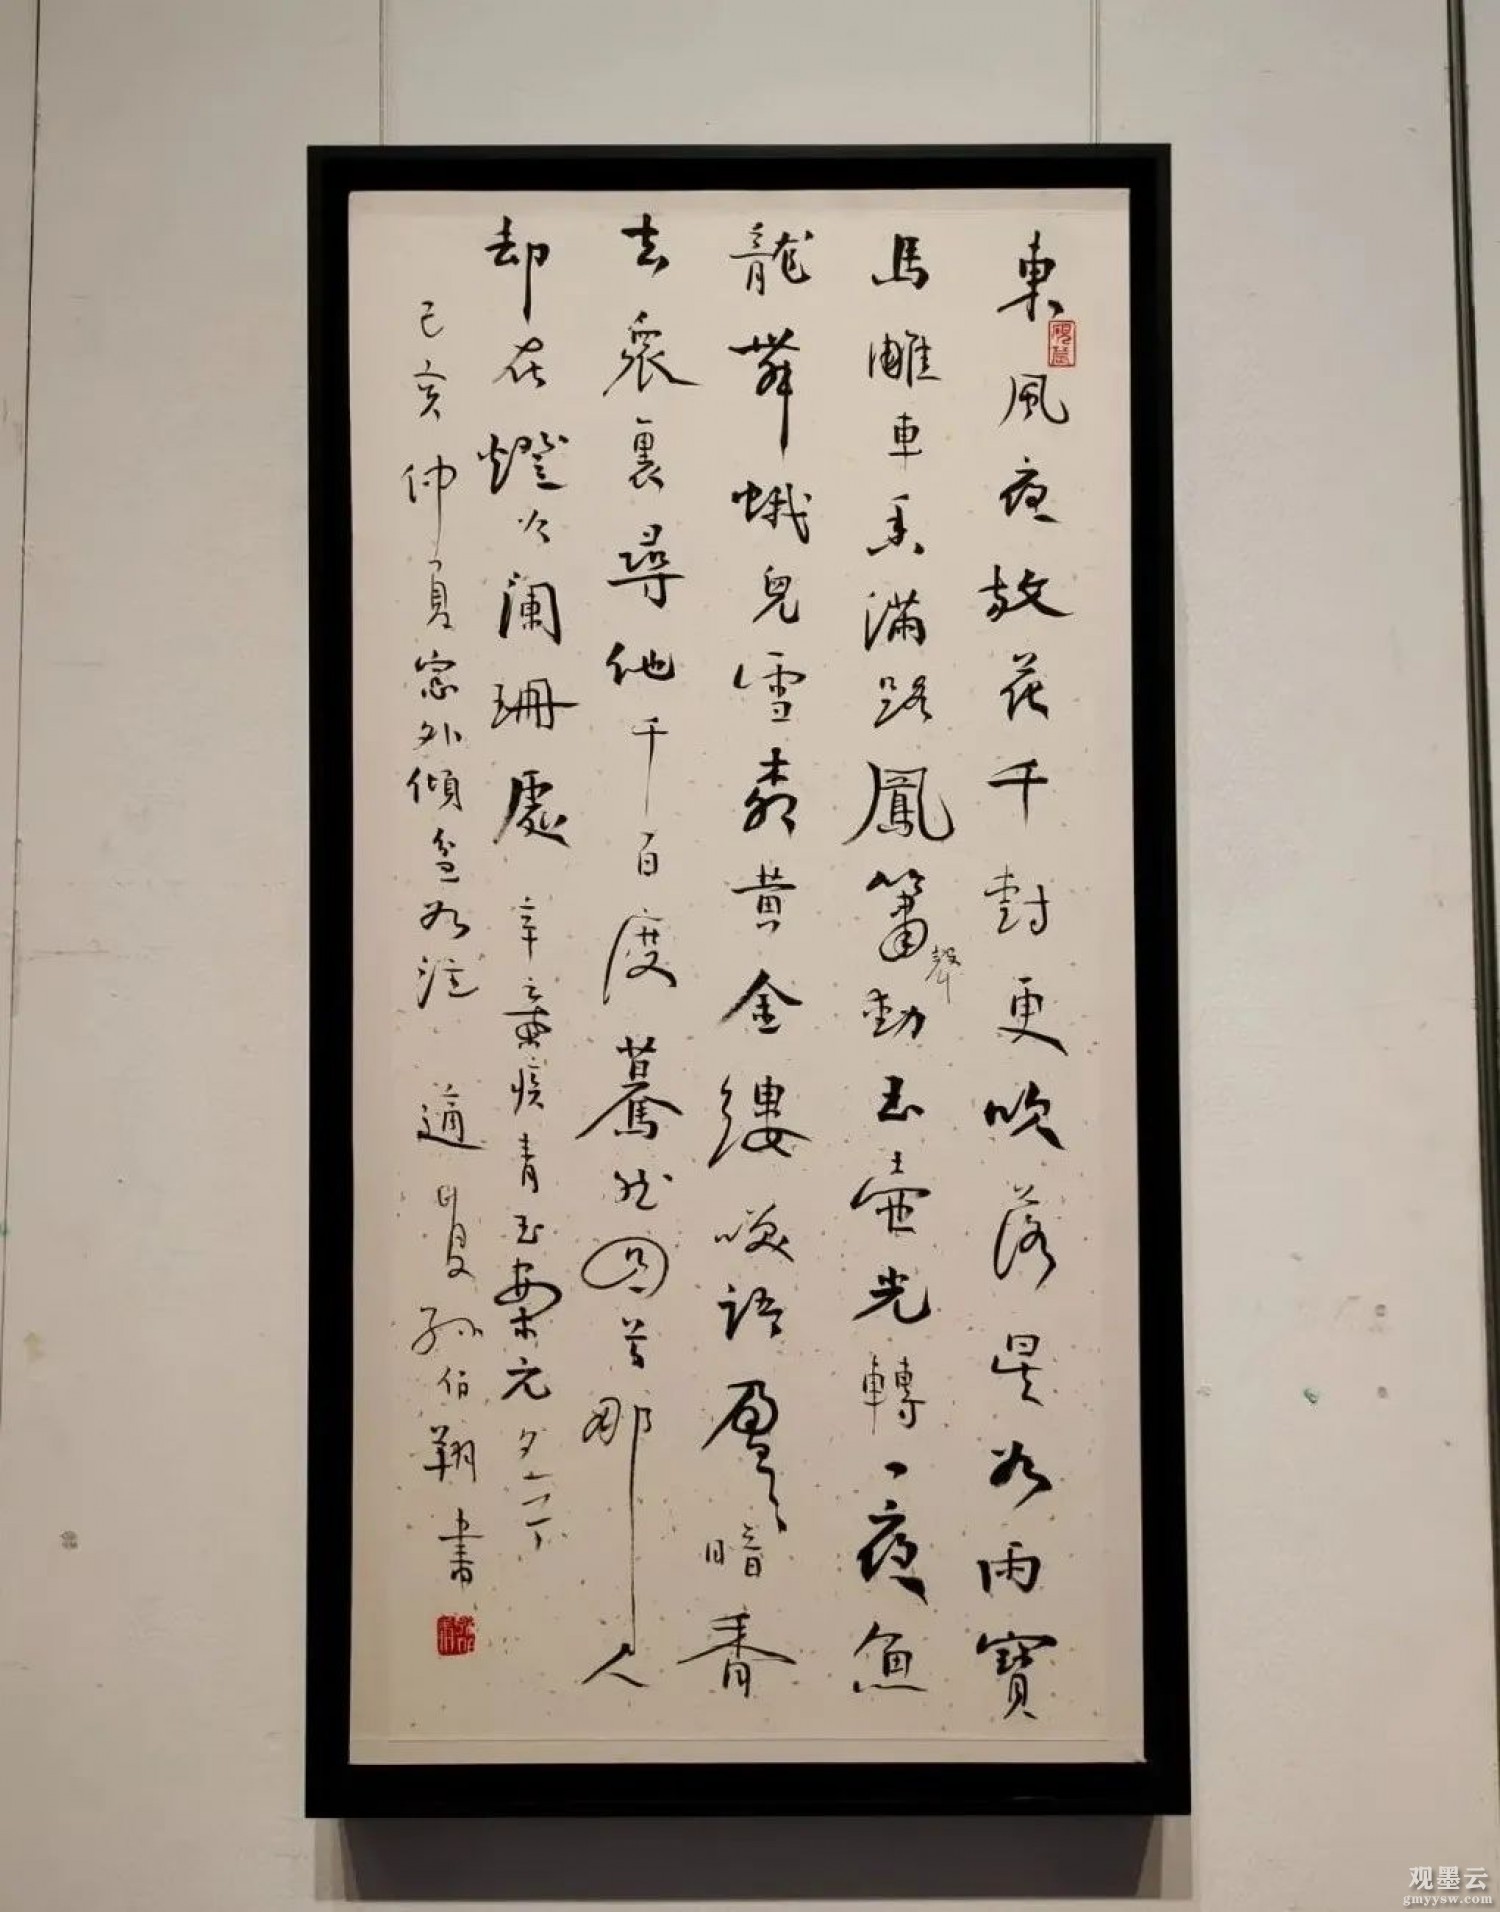 東風夜放花千樹更吹落星如雨寶
馬雕車香滿路鳳簫聲動玉壺光轉一夜魚
龍舞蛾兒雪柳黃金縷笑語盈盈暗香
去衆裏尋他千百度驀然回首那人
却在燈火闌珊處 辛棄疾青玉案元夕
己亥仲夏窓外傾盆如注 孫伯翔書
观墨云
gmyysw.com